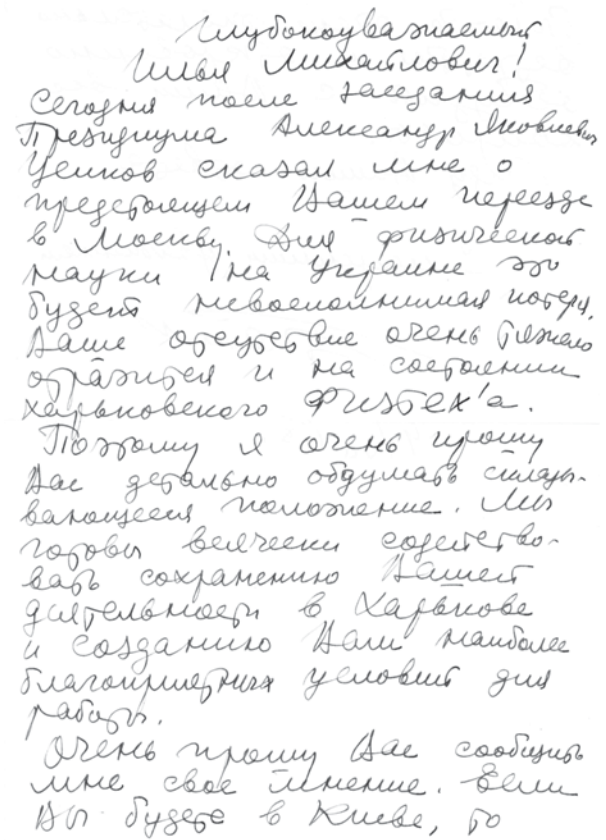 Глубокоуважаемый
Илья Михайлович!
Сегодня после заседания
Президиума Александр Яковлевич
Усиков сказал мне о
предстоящем Вашем переезде
в Москву. Для физической
науки на Украине это
будет невосполнимая потеря.
Ваше отсутствие очень тяжело
отразится и на состоянии
харьковского Физтех'а.
Поэтому я очень прошу
Вас детально обдумать склады-
вающееся положение. Мы
готовы всячески содейство-
вать сохранению Вашей
деятельности в Харькове
и созданию Вам наиболее
благоприятных условий для
работы.
Очень прошу Вас сообщить
мне свое мнение. Если
Вы будете в Киеве, то